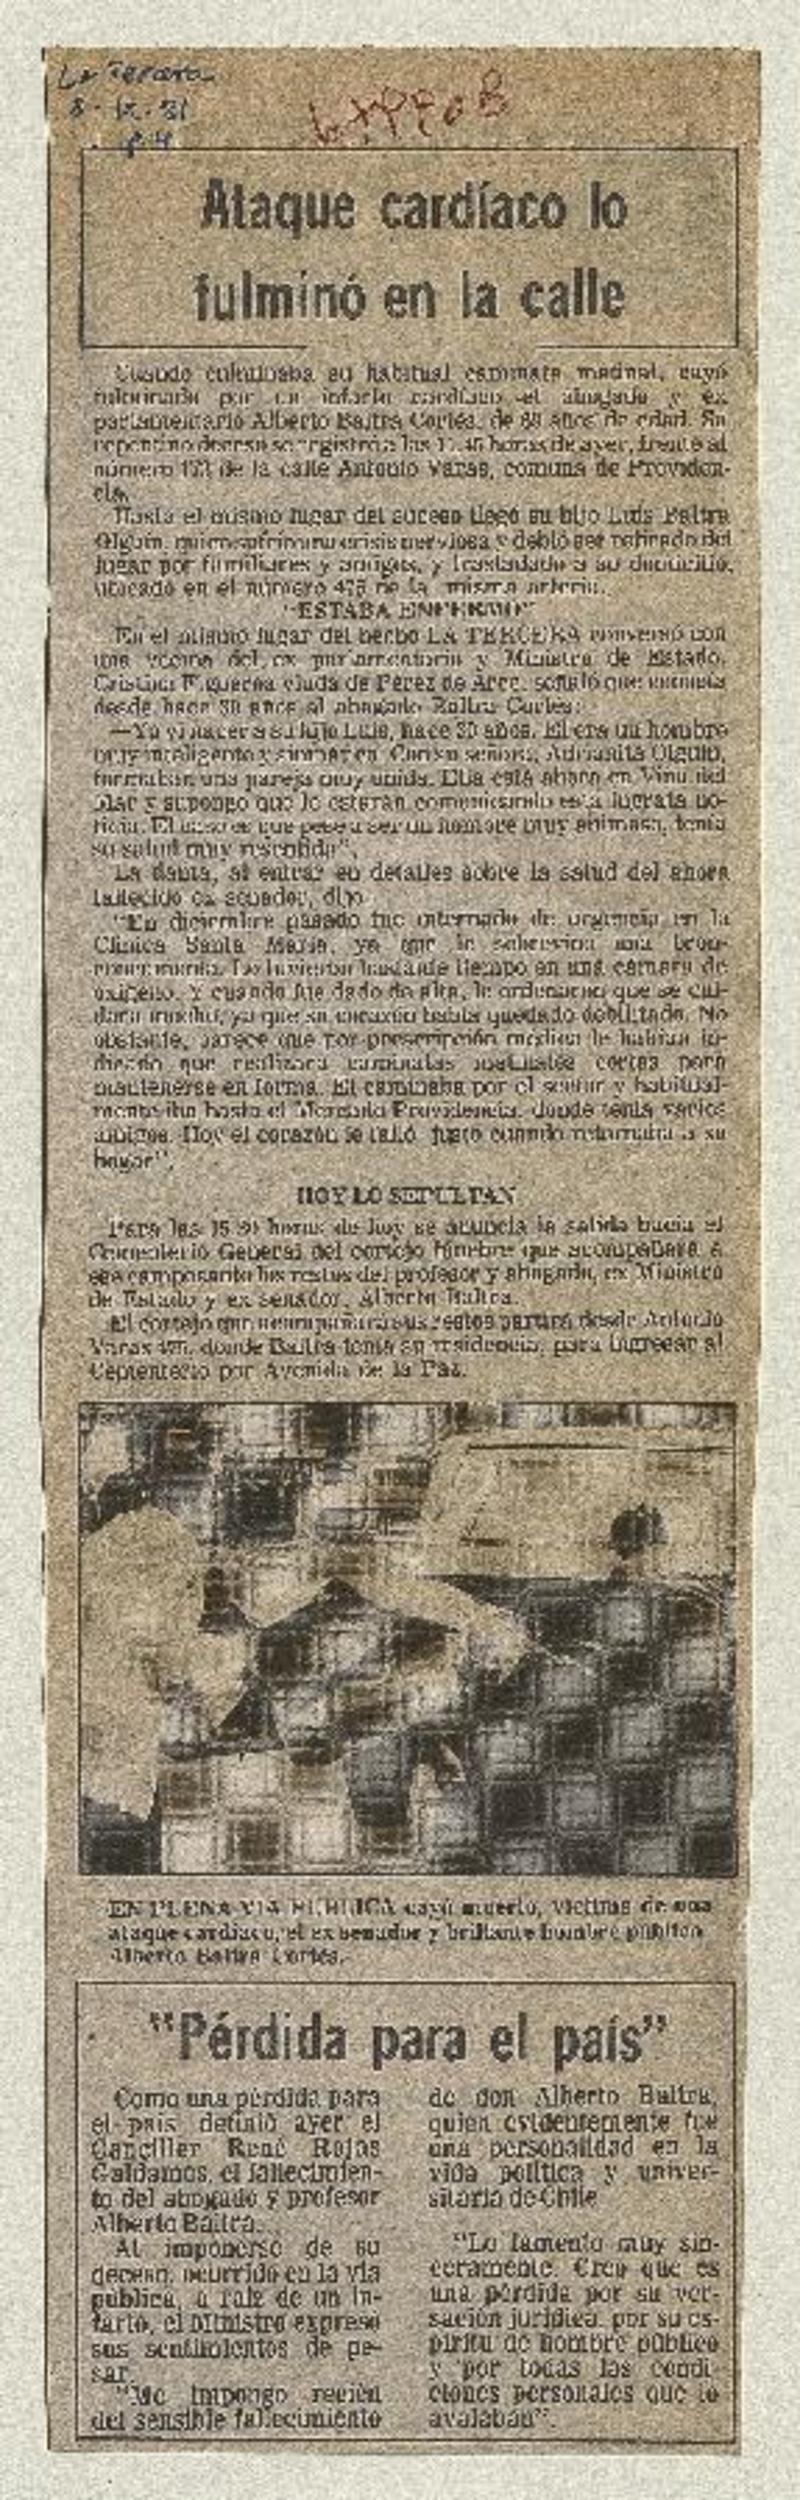 La Tercera
8-IX-81
p. 4
Ataque cardíaco lo
fulminó en la calle
Cuando culminaba su habitual caminata matinal, cayó
fulminado por un infarto cardíaco el abogado y ex
parlamentario Alberto Baltra Cortés, de 69 años de edad. Su
repentino deceso se registró a las 11.45 horas de ayer, frente al
número de la calle Antonio Varas, comuna de Providen-
cia.
Hasta el mismo lugar del suceso llegó su hijo Luis Baltra
Olguín, quien sufrió una crisis nerviosa y debió ser retirado del
lugar por familiares y amigos, y trasladado a su domicilio,
ubicado en el número 475 de la misma arteria.
"ESTABA ENFERMO"
En el mismo lugar del hecho LA TERCERA conversó con
una vecina del ex parlamentario y Ministro de Estado.
Cristina Figueroa viuda de Pérez de Arce, señaló que conocía
desde hace 30 años al abogado Baltra Cortés:
—Yo vi nacer a su hijo Luis, hace 30 años. El era un hombre
muy inteligente y simpático. Con su señora, Adrianita Olguín,
formaban una pareja muy unida. Ella está ahora en Viña del
Mar y supongo que le estarán comunicando esta ingrata no-
ticia. El caso es que pese a ser un hombre muy animoso, tenía
su salud muy resentida".
La dama, al entrar en detalles sobre la salud del ahora
fallecido ex senador, dijo:
"En diciembre pasado fue internado de urgencia en la
Clínica Santa María, ya que le sobrevino una bron-
coneumonía. Lo tuvieron bastante tiempo en una cámara de
oxígeno. Y cuando fue dado de alta, le ordenaron que se cui-
dara mucho, ya que su corazón había quedado debilitado. No
obstante, parece que por prescripción médica le habían in-
dicado que realizara caminatas matinales cortas para
mantenerse en forma. El caminaba por el sector y habitual-
mente iba hasta el Mercado Providencia, donde tenía varios
amigos. Hoy el corazón le falló, justo cuando retornaba a su
hogar".
HOY LO SEPULTAN
Para las 15.30 horas de hoy se anuncia la salida hacia el
Cementerio General del cortejo fúnebre que acompañará a
ese camposanto los restos del profesor y abogado, ex Ministro
de Estado y ex senador, Alberto Baltra.
El cortejo que acompañará sus restos partirá desde Antonio
Varas 475, donde Baltra tenía su residencia, para ingresar al
Cementerio por Avenida de la Paz.
EN PLENA VIA PUBLICA cayó muerto, víctima de una
ataque cardíaco, el ex senador y brillante hombre público
Alberto Baltra Cortés.
"Pérdida para el país"
Como una pérdida para
el país definió ayer el
Canciller René Rojas
Galdames, el fallecimien-
to del abogado y profesor
Alberto Baltra.
Al imponerse de su
deceso, ocurrido en la vía
pública, a raíz de un in-
farto, el Ministro expresó
sus sentimientos de pe-
sar.
"Me impongo recién
del sensible fallecimiento
de don Alberto Baltra,
quien evidentemente fue
una personalidad en la
vida política y univer-
sitaria de Chile.
"Lo lamento muy sin-
ceramente. Creo que es
una pérdida por su ver-
sación jurídica, por su es-
píritu de hombre público
y por todas las condi-
ciones personales que lo
avalaban".